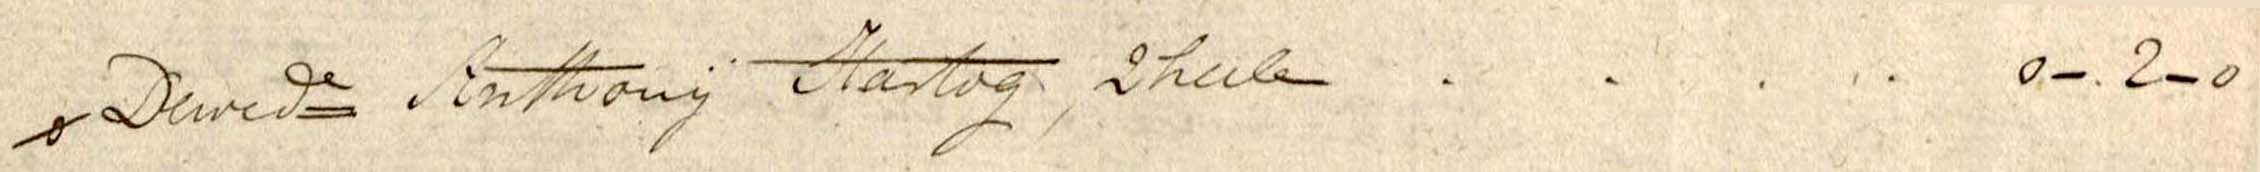 De wede Anthonij Hartog, 2 heele . . . . 0-.2-0